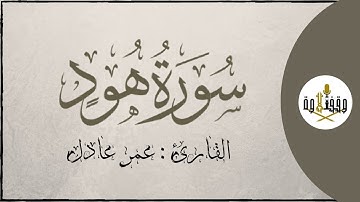 سُورَةُ هُودٍ
القارئ : عمر عادل